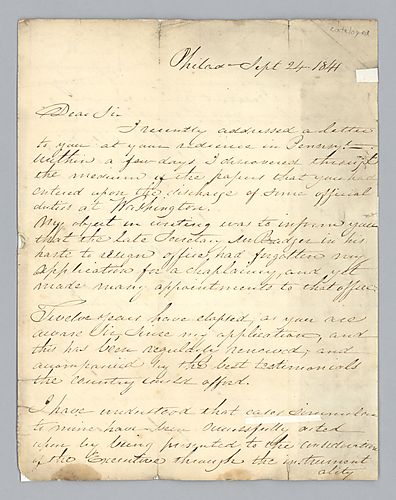 catalogued
Philad- Sept 24. 1841
Dear Sir
I recently addressed a letter
to you at your residence in Pennsyl-
Within a few days, I discovered through
the medium of the papers that you had
entered upon the discharge of some official
duties at Washington.
My object in writing was to inform you
that the late Secretary Mr Badger in his
haste to resign office, had forgotten my
application for a chaplaincy, and yet
made many appointments to that office.
Twelve years have elapsed, as you are
aware Sir, since my application, and
this has been regularly renewed, and
accompanied by the best testimonials
the country could afford.
I have understood that cases similar
to mine have been successfully acted
upon by being presented to the consideration
of the Executive through the instrument
ality